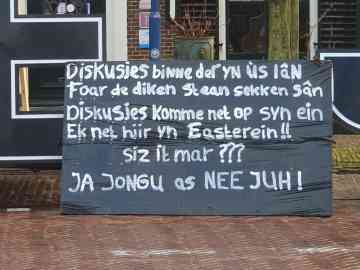 Diskusjes binne der yn ùs lân
Foar de diken staan sekken sân
Diskusjes Komme net op syn ein
Ek net hjir yn Easterein!!
siz it mar ???
JA JONGU as NEE JUH!